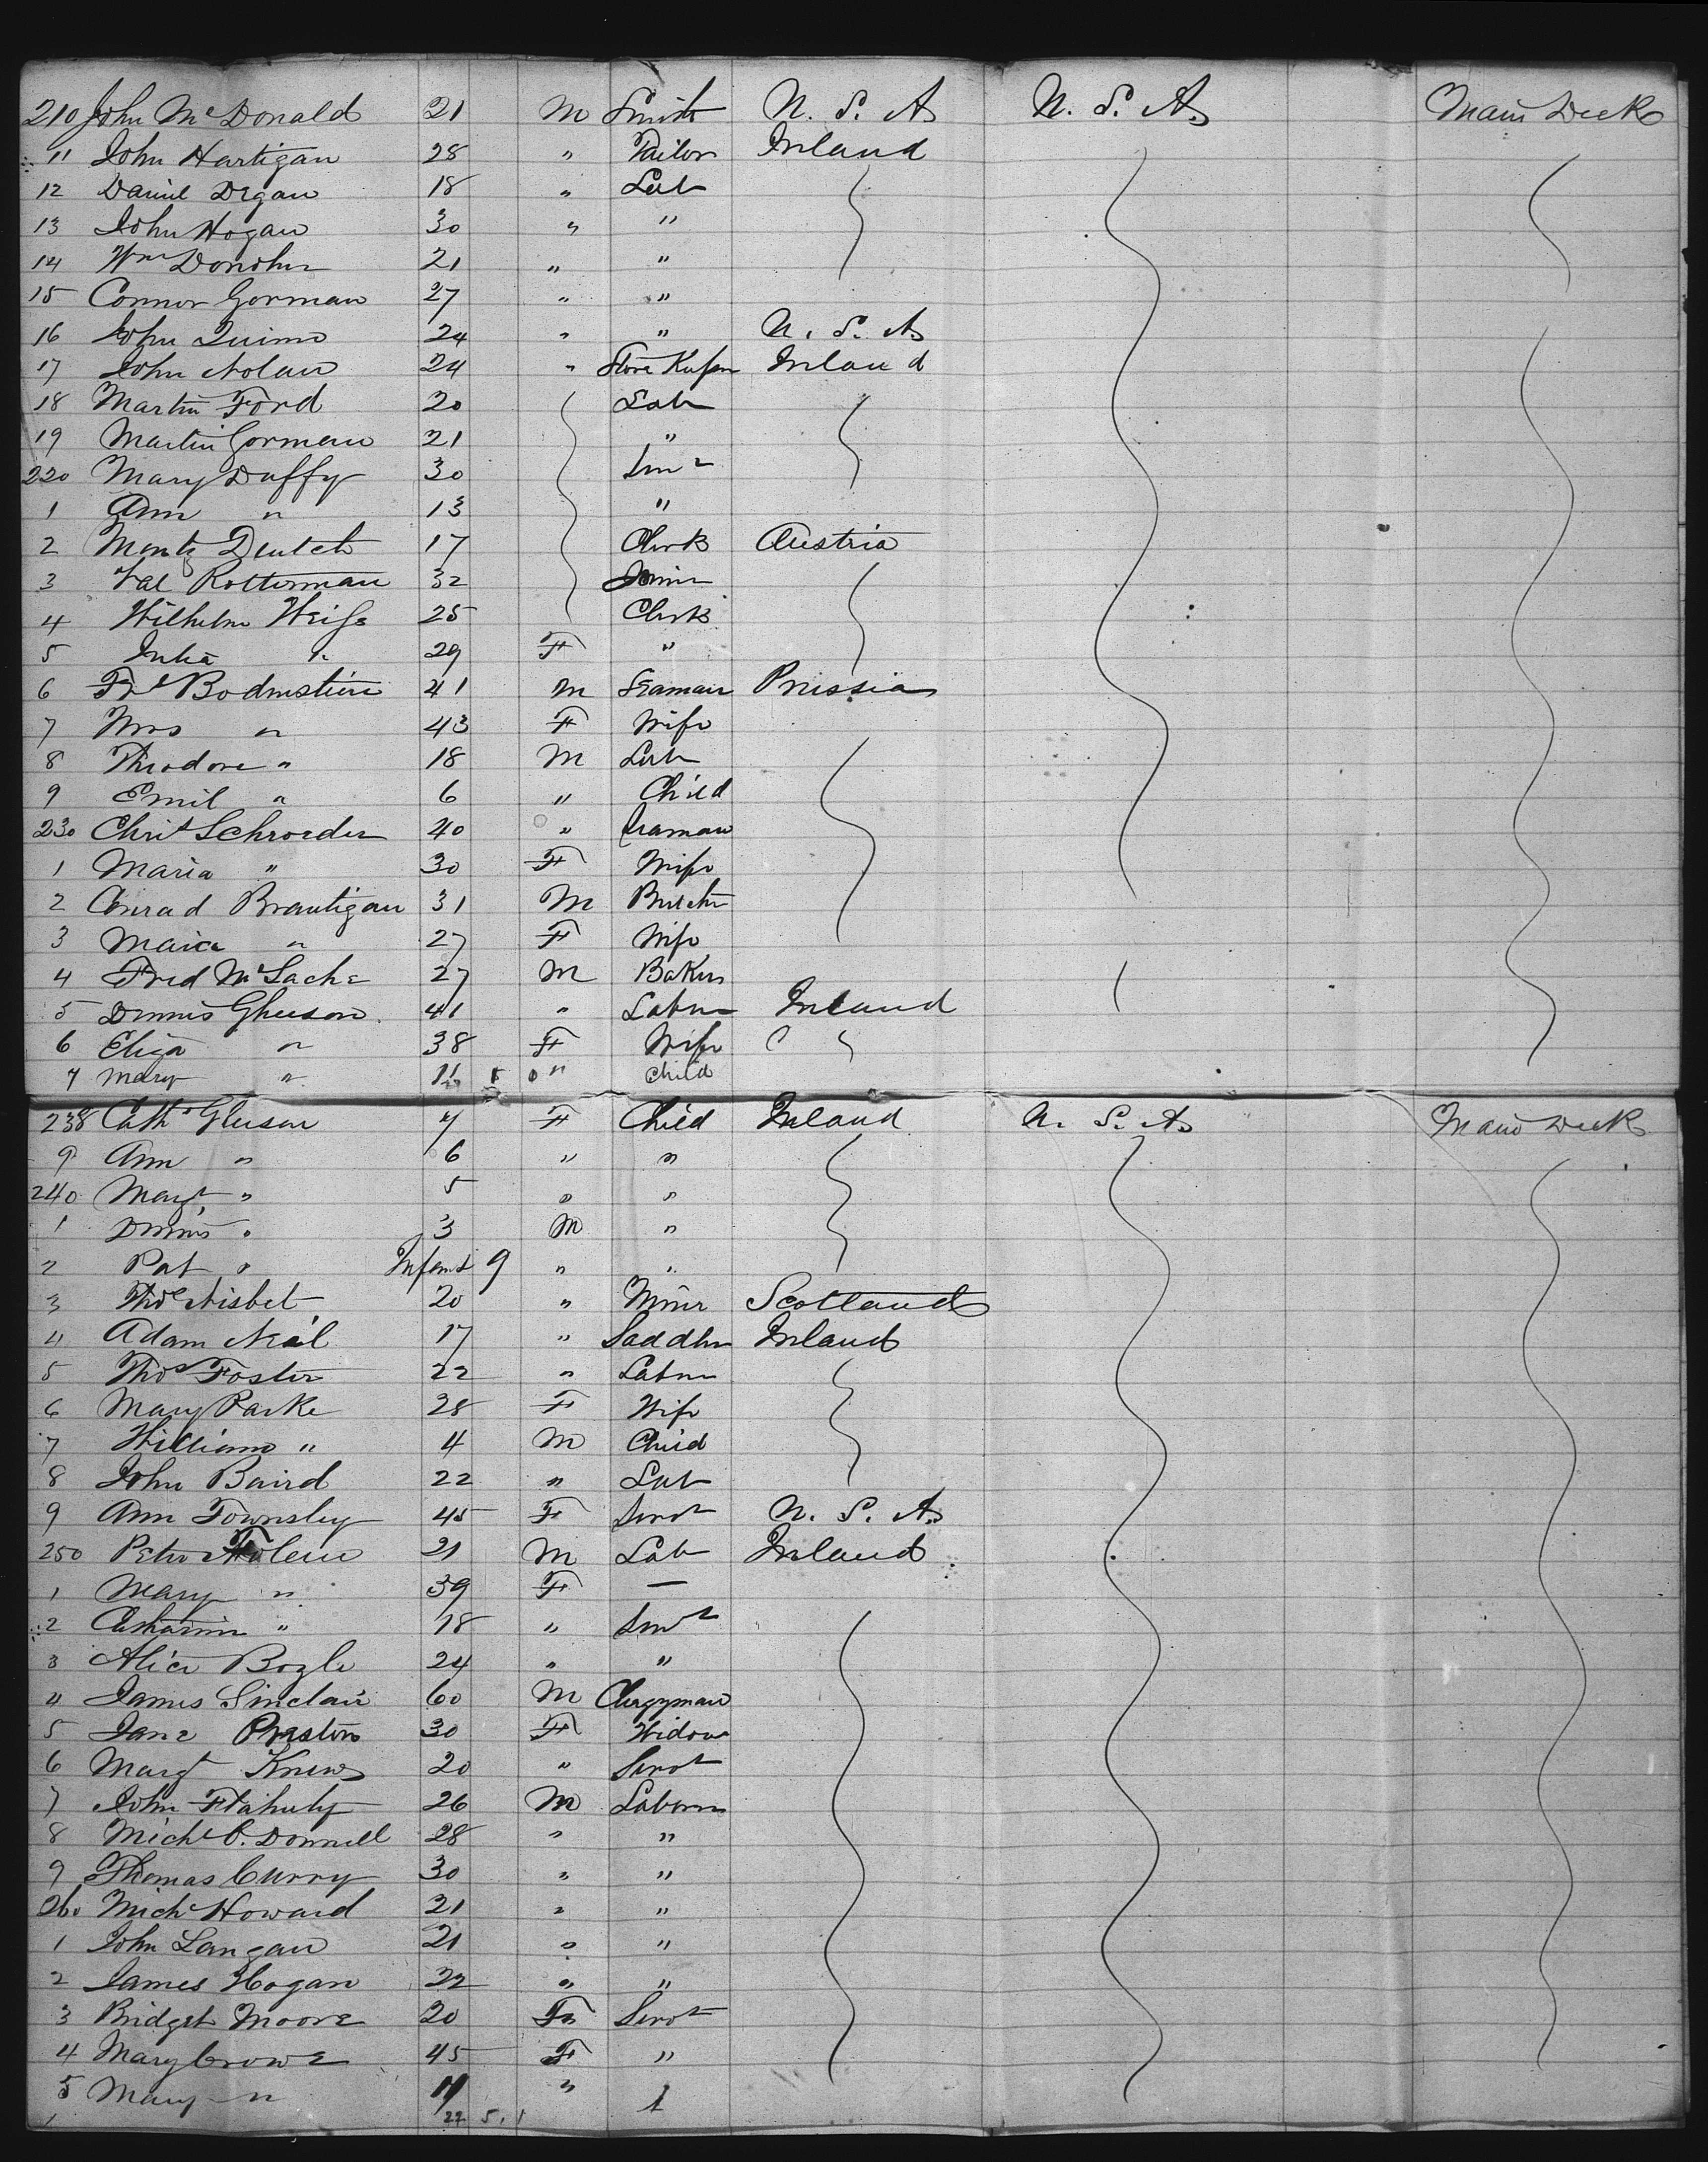 210 John McDonald 21 M Smith U. S. A. U. S. A. Main Deck
11 John Hartigan 28 " Tailor Ireland
12 Daniel Degan 18 " Lab
13 John Hogan 30 " "
14 Wm Donohue 21 " "
15 Connor Gorman 27 " "
16 John Quinn 24 " " U. S. A.
17 John Nolan 24 " Store Keeper Ireland
18 Martin Ford 20 Lab
19 Martin Gorman 21 "
220 Mary Duffy 30
1 Ann " 13 "
2 Moritz Deutch 17 Clerk Austria
3 Val Rotterman 32
4 Wilhelm Weiss 25 Clerk
5 " 29 F "
6 Bodenstein 41 M Seaman Prussia
7 Mrs " 43 F Wife
8 Theodore " 18 M Lab
9 Emil " 6 " Child
230 Christ Schroeder 40 " Seaman
1 Maria " 30 F Wife
2 Conrad Brautigan 31 M Butcher
3 Maria " 27 F Wife
4 Fred 27 M Baker
5 Dennis Gleeson 41 " Labour Ireland
6 Eliza " 38 F Wife
7 Mary " 11 " Child
238 Cath Gleeson 7 F Child Ireland U. S. A. Main Deck
9 Ann " 6 " "
240 Margt " 5 " "
1 Dennis " 3 M "
2 Pat " Infant 9 " "
3 Thos Nisbet 20 " Miner Scotland
4 Adam Neal 17 " Saddler Ireland
5 Thos Foster 22 " Labour
6 Mary Parke 28 F Wife
7 William " 4 M Child
8 John Baird 22 " Lab
9 Ann Townsley 45 F Servt U. S. A.
250 Peter 21 M Lab Ireland
1 Mary " 39 F —
2 Catharine " 18 " Servt
3 Alice Bogle 24 " "
4 James Sinclair 60 M Clergyman
5 Jane Preston 30 F Widow
6 Margt 20 " Servt
7 John Flahuly 26 M Labourer
8 Michl O. Donnell 28 " "
9 Thomas Curry 30 " "
260 Michl Howard 21 " "
1 John Langan 21 " "
2 James Hogan 22 " "
3 Bridget Moore 20 F Servt
4 Mary Crowe 45 F "
5 Mary " 11 "